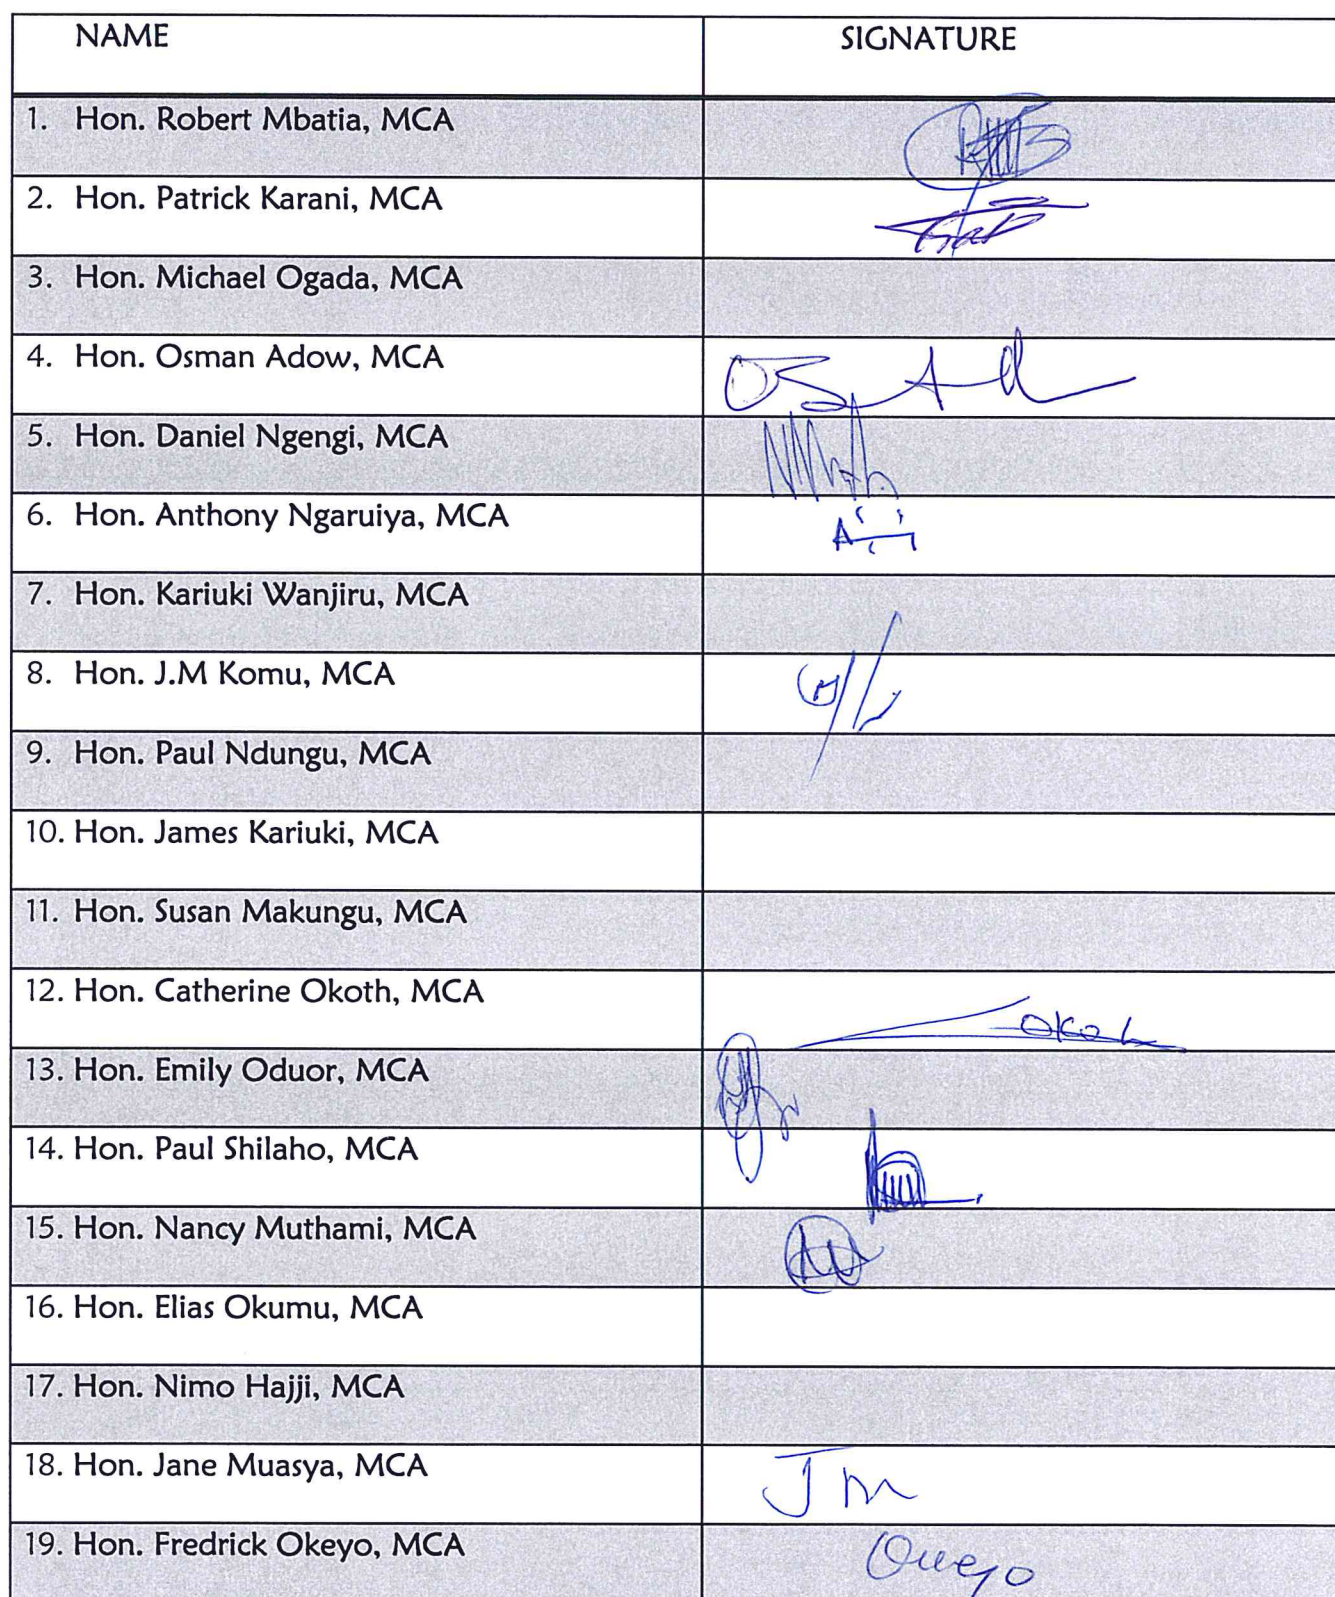 NAME SIGNATURE
1. Hon. Robert Mbatia, MCA
2. Hon. Patrick Karani, MCA
3. Hon. Michael Ogada, MCA
4. Hon. Osman Adow, MCA
5. Hon. Daniel Ngengi, MCA
6. Hon. Anthony Ngaruiya, MCA
7. Hon. Kariuki Wanjiru, MCA
8. Hon. J.M Komu, MCA
9. Hon. Paul Ndungu, MCA
10. Hon. James Kariuki, MCA
11. Hon. Susan Makungu, MCA
12. Hon. Catherine Okoth, MCA
13. Hon. Emily Oduor, MCA
14. Hon. Paul Shilaho, MCA
15. Hon. Nancy Muthami, MCA
16. Hon. Elias Okumu, MCA
17. Hon. Nimo Hajji, MCA
18. Hon. Jane Muasya, MCA Jm
19. Hon. Fredrick Okeyo, MCA